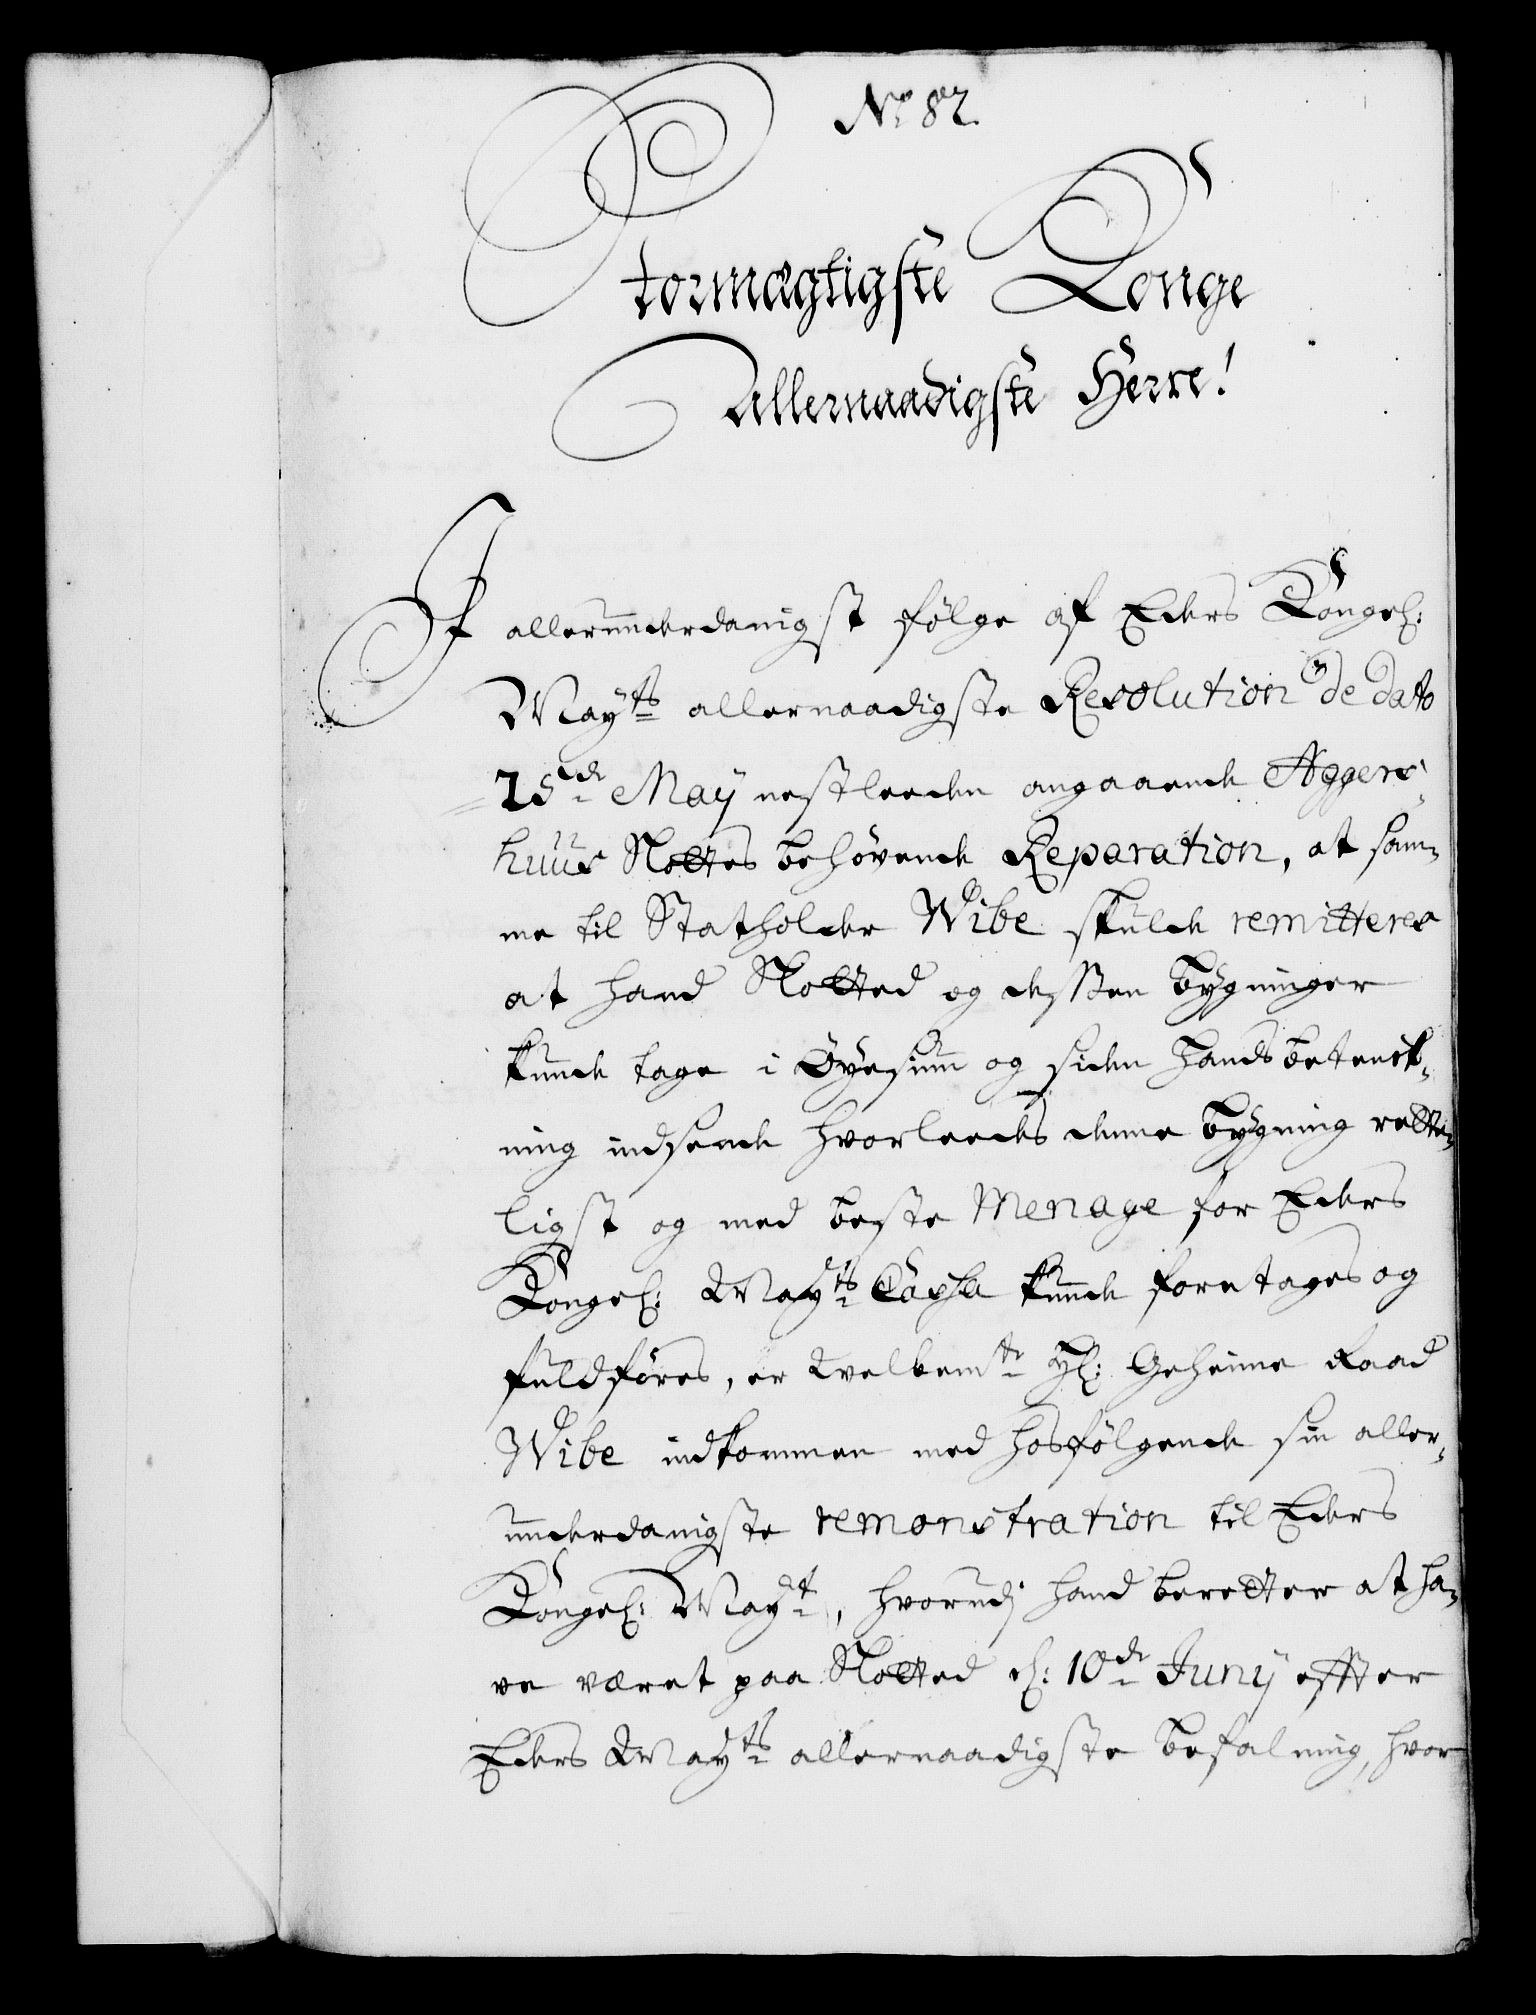 No 82.
Stormægtigste Konge
Allernaadigste Herre!
I allerunderdanigst følge af Eders Kongel:
Mayts allernaadigste Resolution de dato
25de Maÿ nestleeden angaaende Aggers-
huus Slottes behøvende Reparation, at sam-
me til Statholder Wibe skulde remitteres
at hand Slotted og dessen bygninger
kunde tage i Øyesiun og siden hands betenck-
ning indsende hvorleedes denne bygning rette-
ligst og med beste Menage for Eders
Kongel: Mayts Cassa kunde foretages og
fuldføres, er Welbemte Hl: Geheime Raad
Wibe indkommen med hosfølgende sin aller-
underdanigste remonstration til Eders
Kongel: Mayt, hvorudj hand beretter at ha-
ve været paa Slotted d: 10de Junÿ effter
Eders Mayts allernaadigste befalning, hvor